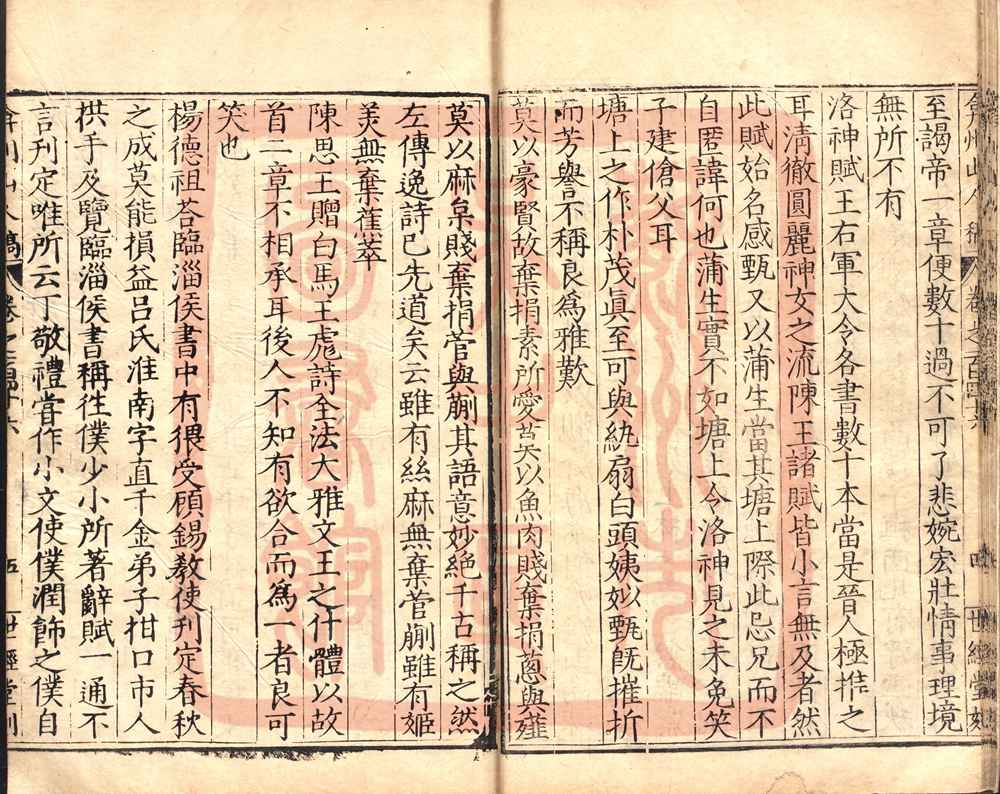 至謁帝一章便數十過不可了悲婉宏壯情事理境
無所不有
洛神賦王右軍大令各書數十本當是晉人極推之
耳清徹圓麗神女之流陳王諸賦皆小言無及者然
此賦始名感甄又以蒲生當其塘上際此忌兄而不
自匿諱何也蒲生實不如塘上令洛神見之未免笑
子建傖父耳
塘上之作朴茂眞至可與紈扇白頭姨姒甄旣摧折
而芳譽不稱良爲雅歎
莫以豪賢故棄捐素所愛莫以魚肉賤棄捐蔥與薤
莫以麻枲賤棄捐菅與蒯其語意妙絶千古稱之然
左傳逸詩已先道矣云雖有絲麻無棄菅蒯雖有姬
美無棄蕉萃
陳思王贈白馬王彪詩全法大雅文王之什體以故
首二章不相承耳後人不知有欲合而爲一者良可
笑也
楊德祖荅臨淄侯書中有猥受顧錫敎使刊定春秋
之成莫能損益呂氏淮南字直千金弟子柑口市人
拱手及覽臨淄侯書稱徃僕少小所著辭賦一通不
言刊定唯所云丁敬禮甞作小文使僕潤飾之僕自
卷之百四十六
五
世經堂刻